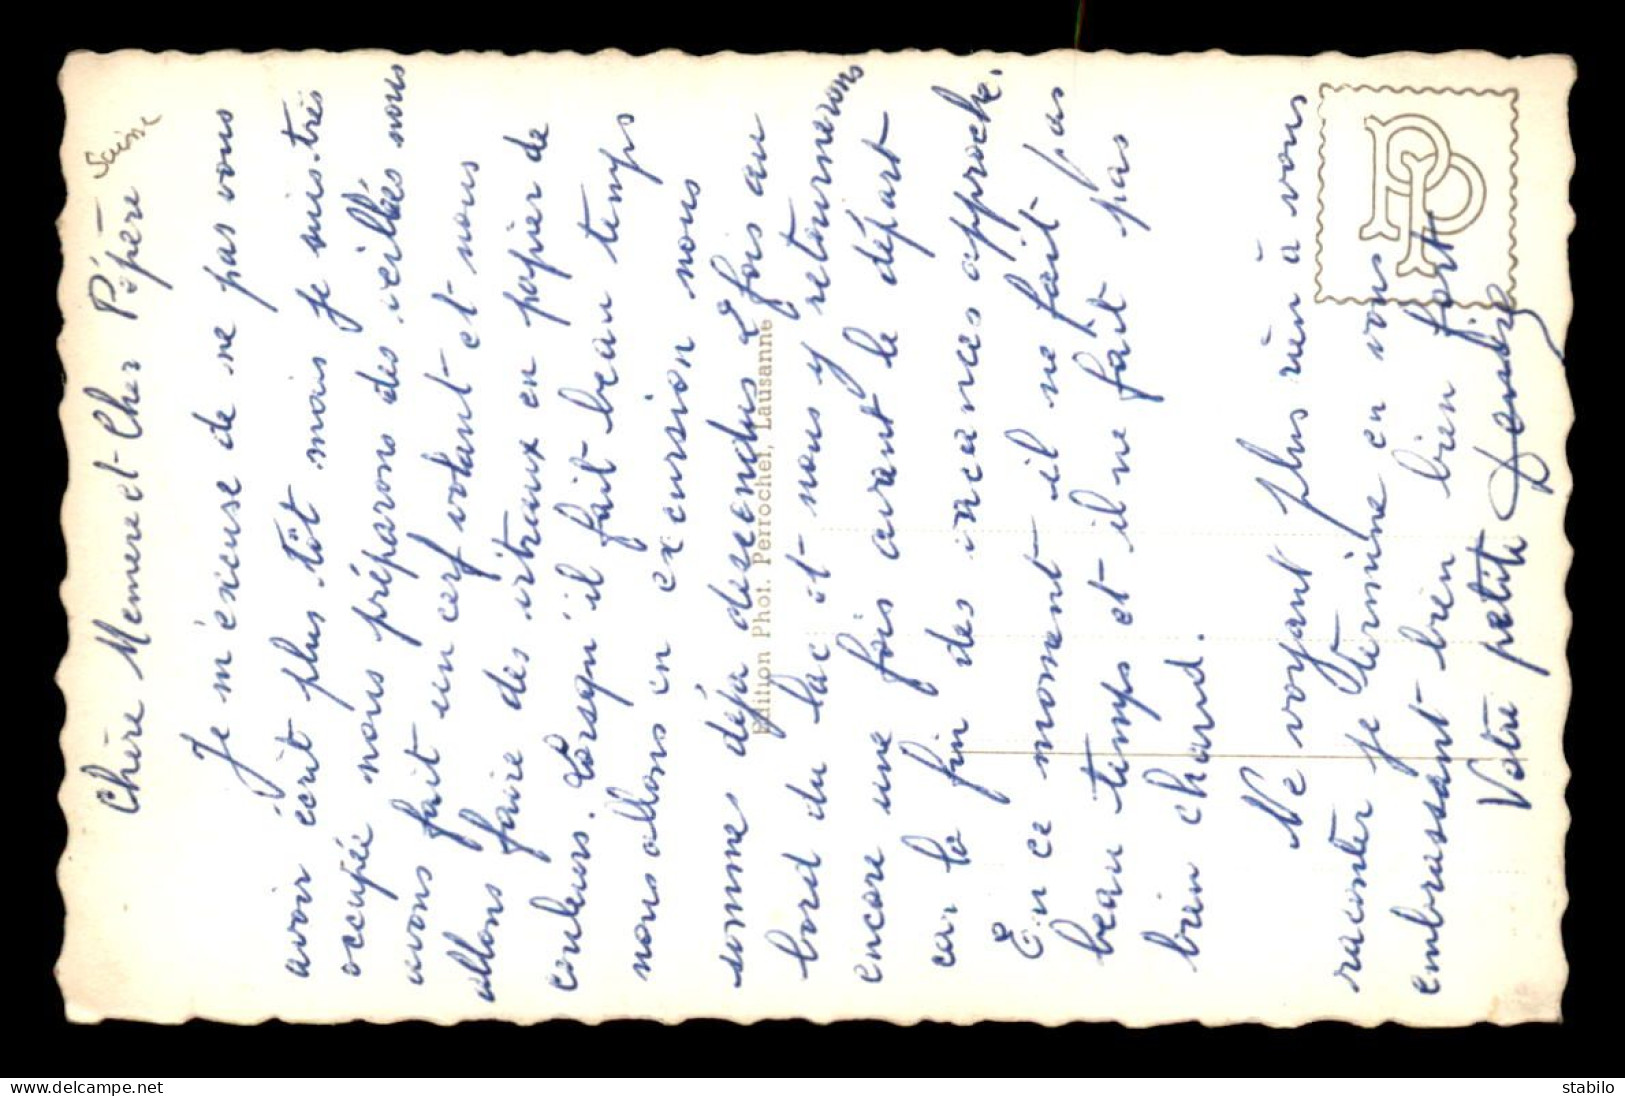 Chère Memere et Cher Pépère
Suisse
Je m'excuse de ne pas vous
avoir écrit plus tôt mais je suis très
occupée nous préparons des veillées nous
avons fait un cerf volant et nous
allons faire des vitraux en papier de
couleurs. Lorsqu'il fait beau temps
nous allons en excursion nous
somme déja desendus 2 fois au
bord du lac et nous y retournerons
encore une fois avant le départ
car la fin des vacances approche.
En ce moment il ne fait pas
beau temps et il ne fait pas
bien chaud.
Ne voyant plus rien à vous
raconter je termine en vous
embrassant bien bien fort
Votre petite
Edition Phot. Perrochet, Lausanne
PP
www.delcampe.net
stabilo